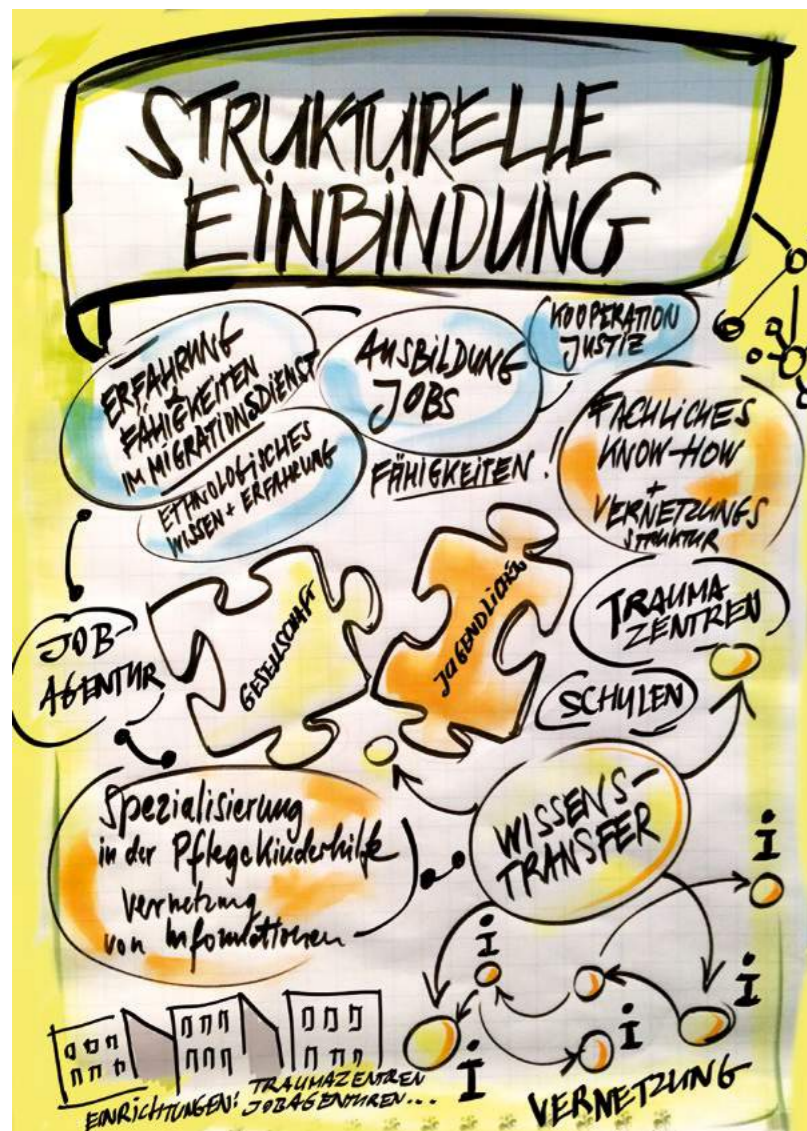 STRUKTURELLE
EINBINDUNG
ERFAHRUNG
+
FÄHIGKEITEN
IM MIGRATIONSDIENST
ETHNOLOGISCHES
WISSEN + ERFAHRUNG
AUSBILDUNG
JOBS
KOOPERATION
JUSTIZ
FÄHIGKEITEN!
FACHLICHES
KNOW-HOW
+
VERNETZUNGS
STRUKTUR
JOB-
AGENTUR
GESELLSCHAFT
JUGENDLICHE
TRAUMA
ZENTREN
SCHULEN
Spezialisierung
in der Pflegekinderhilfe
Vernetzung
von Informationen
WISSENS-
TRANSFER
i
i
i
i
i
EINRICHTUNGEN: TRAUMAZENTREN
JOBAGENTUREN...
VERNETZUNG